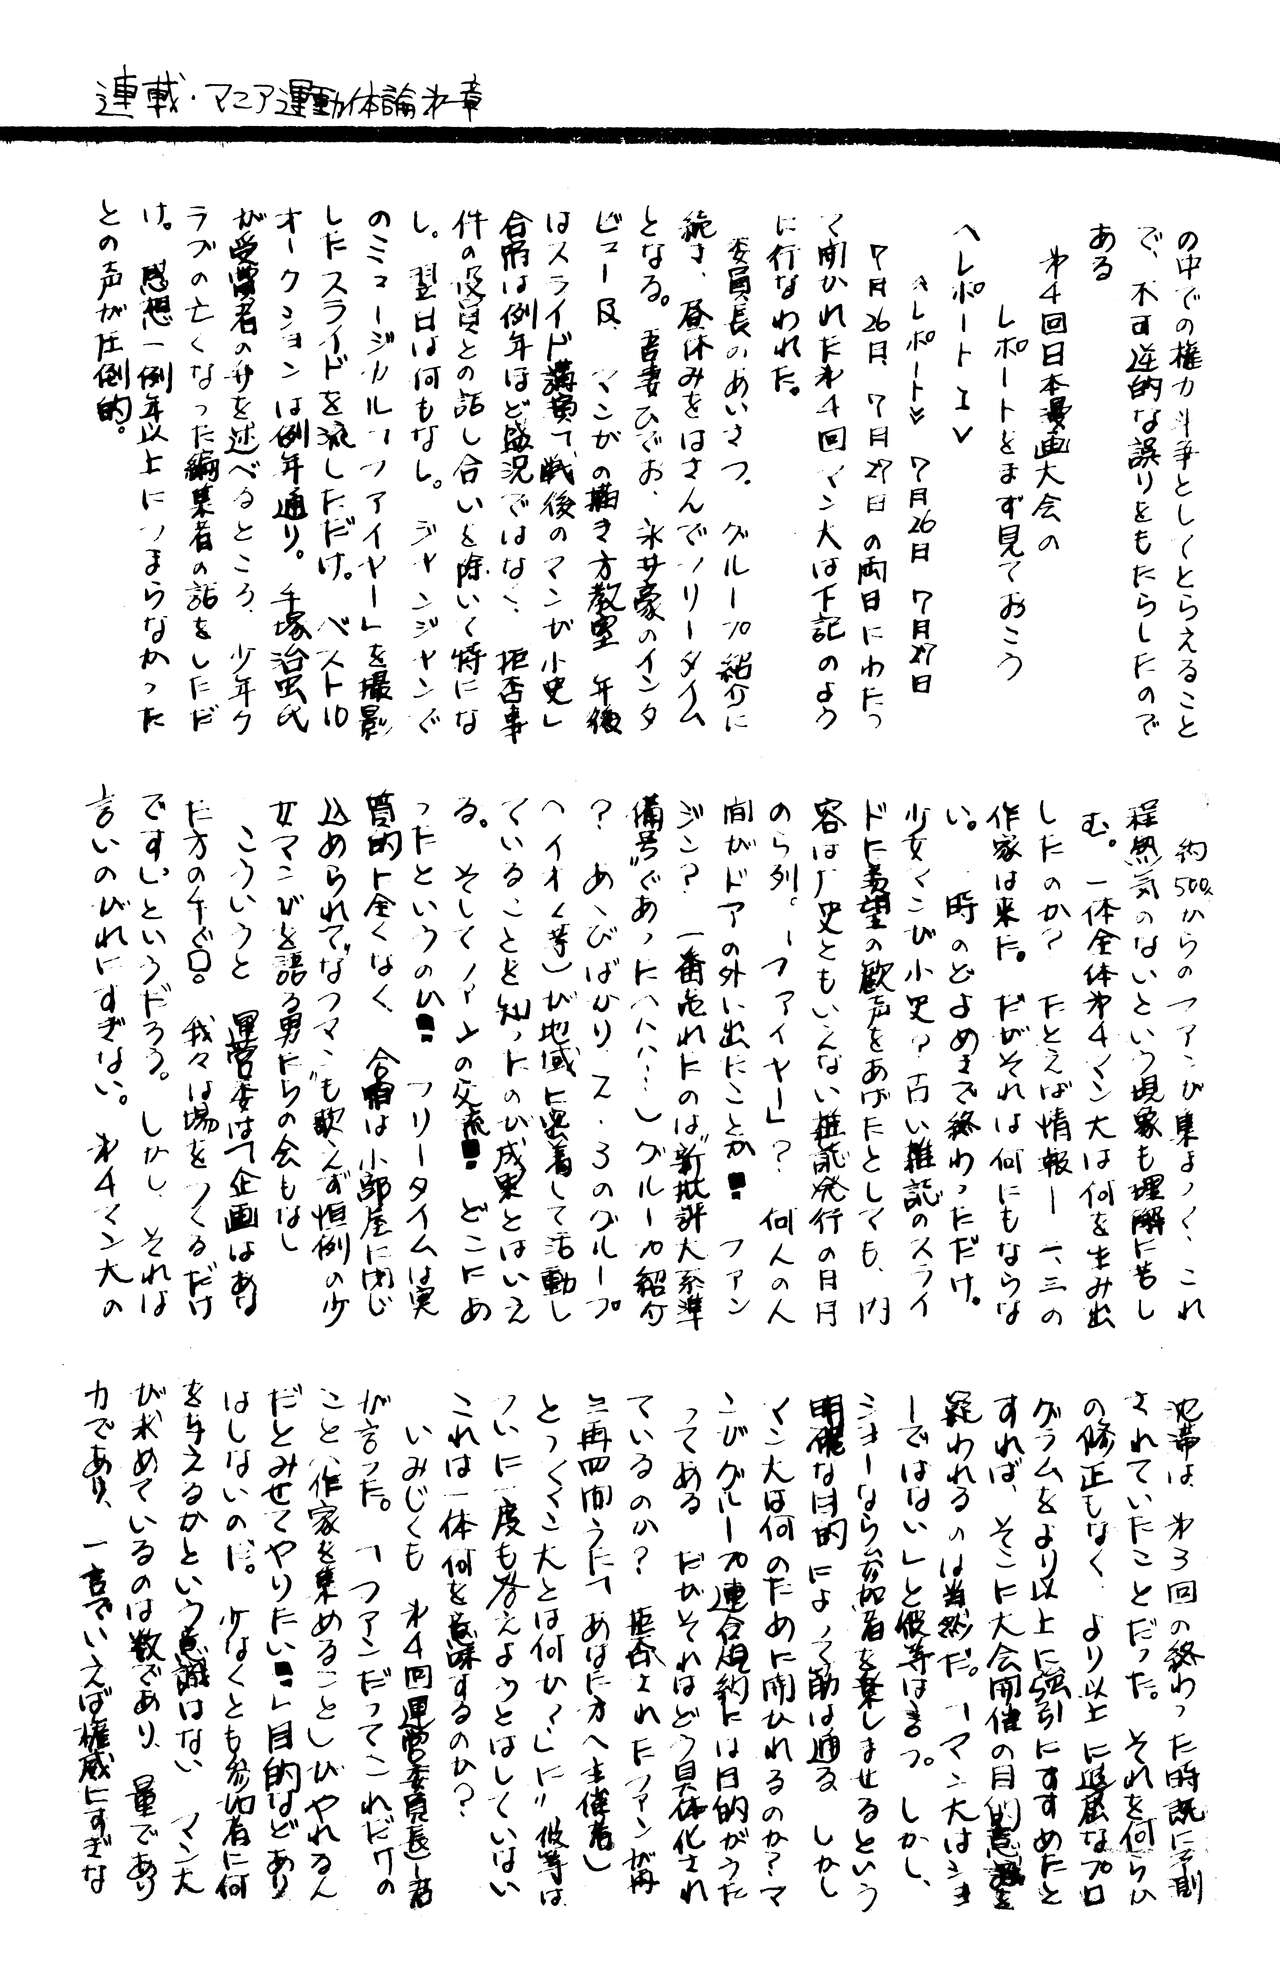 連載・マニア運動体論第一章
の中での権力斗争としてとらえること
で、不可逆的な誤りをもたらしたので
ある
第4回日本漫画大会の
レポートをまず見ておこう
〈レポートI〉
〈レポート〉 7月26日 7月27日
7月26日 7月27日の両日にわたっ
て開かれた第4回マン大は下記のよう
に行なわれた。
委員長のあいさつ。 グループ紹介に
続き、昼休みをはさんでフリータイム
となる。吾妻ひでお、永井豪のインタ
ビュー及、マンガの描き方教室 午後
はスライド講演「戦後のマンガ小史」
合宿は例年ほど盛況ではなく、拒否事
件の役員との話し合いを除いて特にな
し。 翌日は何もなし。 ジャンジャンで
のミュージカル「ファイヤー」を撮影
したスライドを流しただけ。 ベスト10
オークションは例年通り。 手塚治虫氏
が受賞者の弁を述べるところ、少年ク
ラブの亡くなった編集者の話をしただ
け。 感想―例年以上につまらなかった
との声が圧倒的。
約500からのファンが集まって、これ
程熱気のないという現象も理解に苦し
む。一体全体第4マン大は何を生み出
したのか? たとえば情報― 一、三の
作家は来た。 だがそれは何にもならな
い。 一時のどよめきで終わっただけ。
少女マンガ小史? 古い雑誌のスライ
ドに希望の歓声をあげたとしても、内
容は「史ともいえない雑誌発行の日月
のら列。 「ファイヤー」? 何人の人
間がドアの外に出たことか!! ファン
ジン? 一番売れたのは“新批評大系準
備号”であった(ハハ…)グループ紹介
? あゝびばかり 2・3のグループ
(イオ(等)が地域に密着して活動し
ていることを知ったのが成果とはいえ
る。 そしてファンの交流!! どこにあ
ったというのか!! フリータイムは実
質的に全くなく、 合宿は小部屋に閉じ
込められて、“なつマン”も歌えず恒例の少
女マンガを語る男たちの会もなし
こういうと 運営委は「企画はあな
た方の手で□。 我々は場をつくるだけ
です」というだろう。 しかし、それは
言いのがれにすぎない。 第4マン大の
沈滞は、第3回の終わった時既に予測
されていたことだった。それを何らか
の修正もなく、より以上に退屈なプロ
グラムをより以上に強引にすすめたと
すれば、そこに大会開催の目的意識を
疑われるのは当然だ。「マン大はショ
ーではない」と彼等は言う。 しかし、
ショーなら参加者を楽しませるという
明確な目的によって筋は通る しかし
マン大は何のために開かれるのか?マ
ンガグループ連合規約には目的がうた
ってある だがそれはどう具体化され
ているのか? 拒否されたファンが再
三再四問うた「あなた方(主催者)
とってマン大とは何か?」に!!彼等は
ついに一度も答えようとはしていない
これは一体何を意味するのか?
いみじくも 第4回運営委員長―君
が言った。 「ファンだってこれだけの
こと(作家を集めること)がやれるん
だとみせてやりたい!!」目的などあり
はしないのだ。 少なくとも参加者に何
を与えるかという意識はない マン大
が求めているのは数であり、量であり
力であり、一言でいえば権威にすぎな